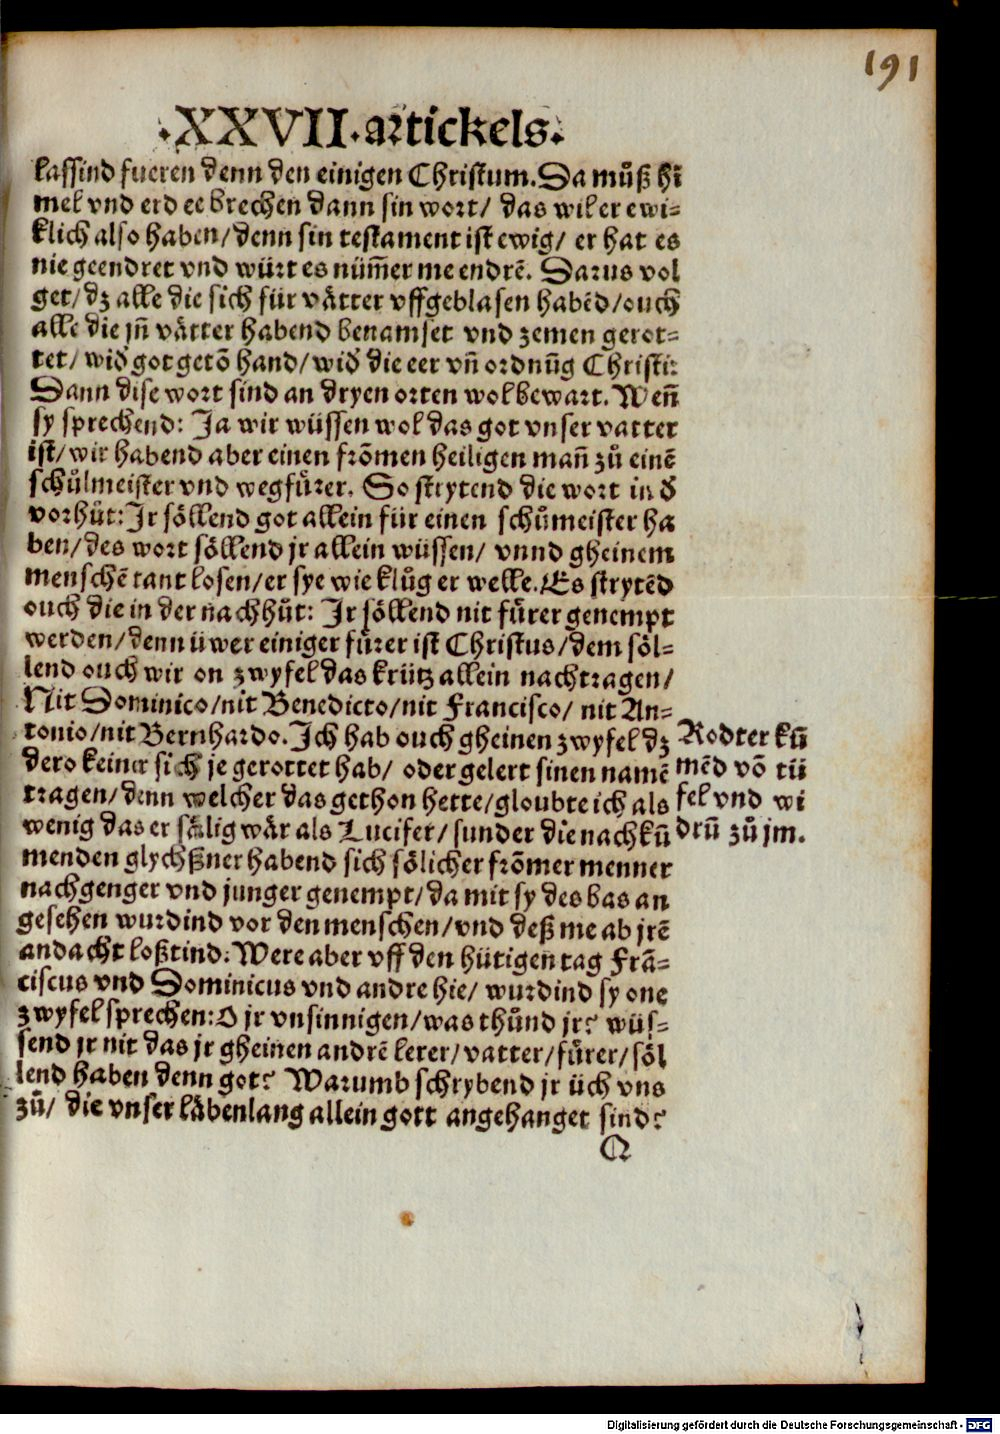 191
·XXVII·artickels·
lassind fueren denn den einigen Christum. Da můß hī
mel vnd erd ee brechen dann sin wort/ das wil er ewi-
klich also haben/denn sin testament ist ewig/ er hat es
nie geendret vnd würt es nüm̄er me endrē. Darus vol
get/dz alle die sich für våtter vffgeblasen habēd/ouch
alle die jn̄ våtter habend benamset vnd zemen gerot-
tet/ wid̓ got getō hand/wid̓ die eer vn̄ ordnūg Christi:
Dann dise wort sind an dryen orten wol bewart. Wen̄
sy sprechend: Ja wir wüssen wol das got vnser vatter
ist/wir habend aber einen frōmen heiligen man̄ zů einē
schůlmeister vnd wegfůrer. So strytend die wort in d̓
vorhůt: Jr söllend got allein für einen schůmeister ha
ben/des wort söllend jr allein wüssen/ vnnd gheinem
menschē tant losen/er sye wie klůg er welle. Es strytēd
ouch die in der nachhůt: Jr söllend nit fůrer genempt
werden/denn üwer einiger fůrer ist Christus/dem söl-
lend ouch wir on zwyfel das krütz allein nachtragen/
Nit Dominico/nit Benedicto/nit Francisco/ nit An-
tonio/nit Bernhardo. Ich hab ouch gheinen zwyfel dz
dero keiner sich je gerottet hab/ oder gelert sinen namē
tragen/denn welcher das gethon hette/gloubte ich als
wenig das er sålig wår als Lucifer/sunder die nachkū
menden glychßner habend sich sölicher frōmer menner
nachgenger vnd junger genempt/da mit sy des bas an
gesehen wurdind vor den menschen/vnd deß me ab jrē
andacht loßtind. Were aber vff den hütigen tag Frā-
ciscus vnd Dominicus vnd andre hie/ wurdind sy one
zwyfel sprechen: O jr vnsinnigen/was thůnd jr? wüs-
send jr nit das jr gheinen andrē lerer/vatter/fůrer/söl
lend haben denn got? Warumb schrybend jr üch vns
zů/ die vnser låbenlang allein gott angehanget sind?
Q
Rodter kū
mēd vō tü
fel vnd wi
drū zů jm.
Digitalisierung gefördert durch die Deutsche Forschungsgemeinschaft - DFG